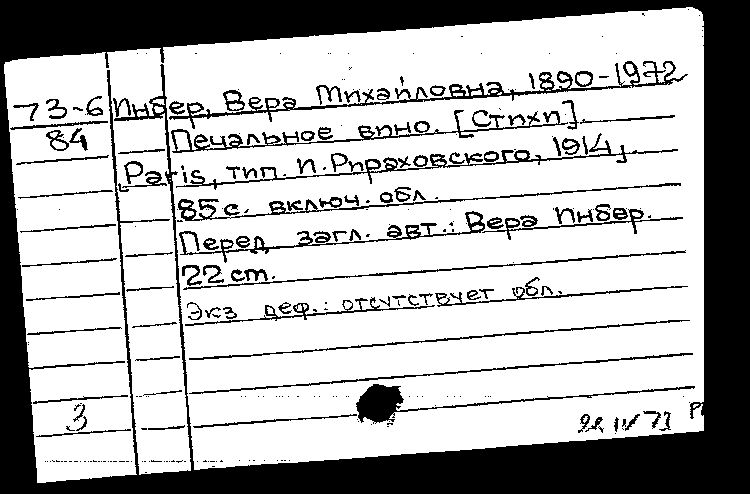 73-6 Инбер, Вера Михайловна, 1890-1972
84 Печальное вино. [Стихи].
[Paris, тип. И. Рираховского, 1914].
85 с. включ. обл.
Перед загл. авт.: Вера Инбер.
22 cm.
Экз деф.: отсутствует обл.
3
IV 73